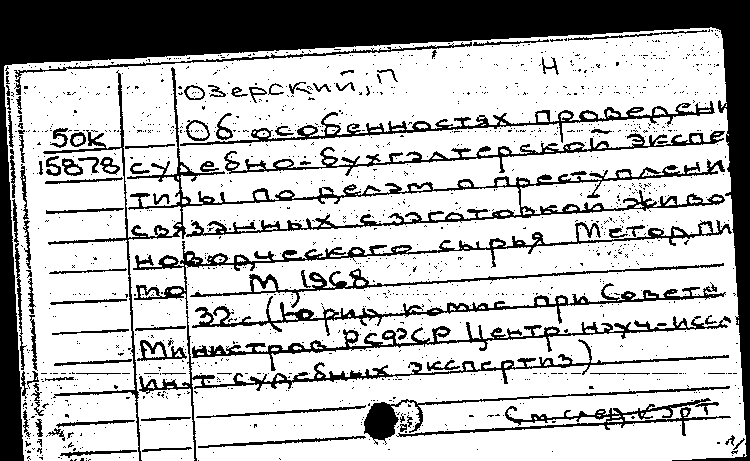 Озерский, П Н
50К Об особенностях проведени
15878 судебно-бухгалтерской экспе
тизы по делам о преступлени
связанных с заготовкой живот
новодческого сырья Метод пи
мо. М, 1968.
32 с (Юрид комис при Совете
Министров РСФСР Центр. науч-иссл
ин-т судебных экспертиз).
См. след. карт